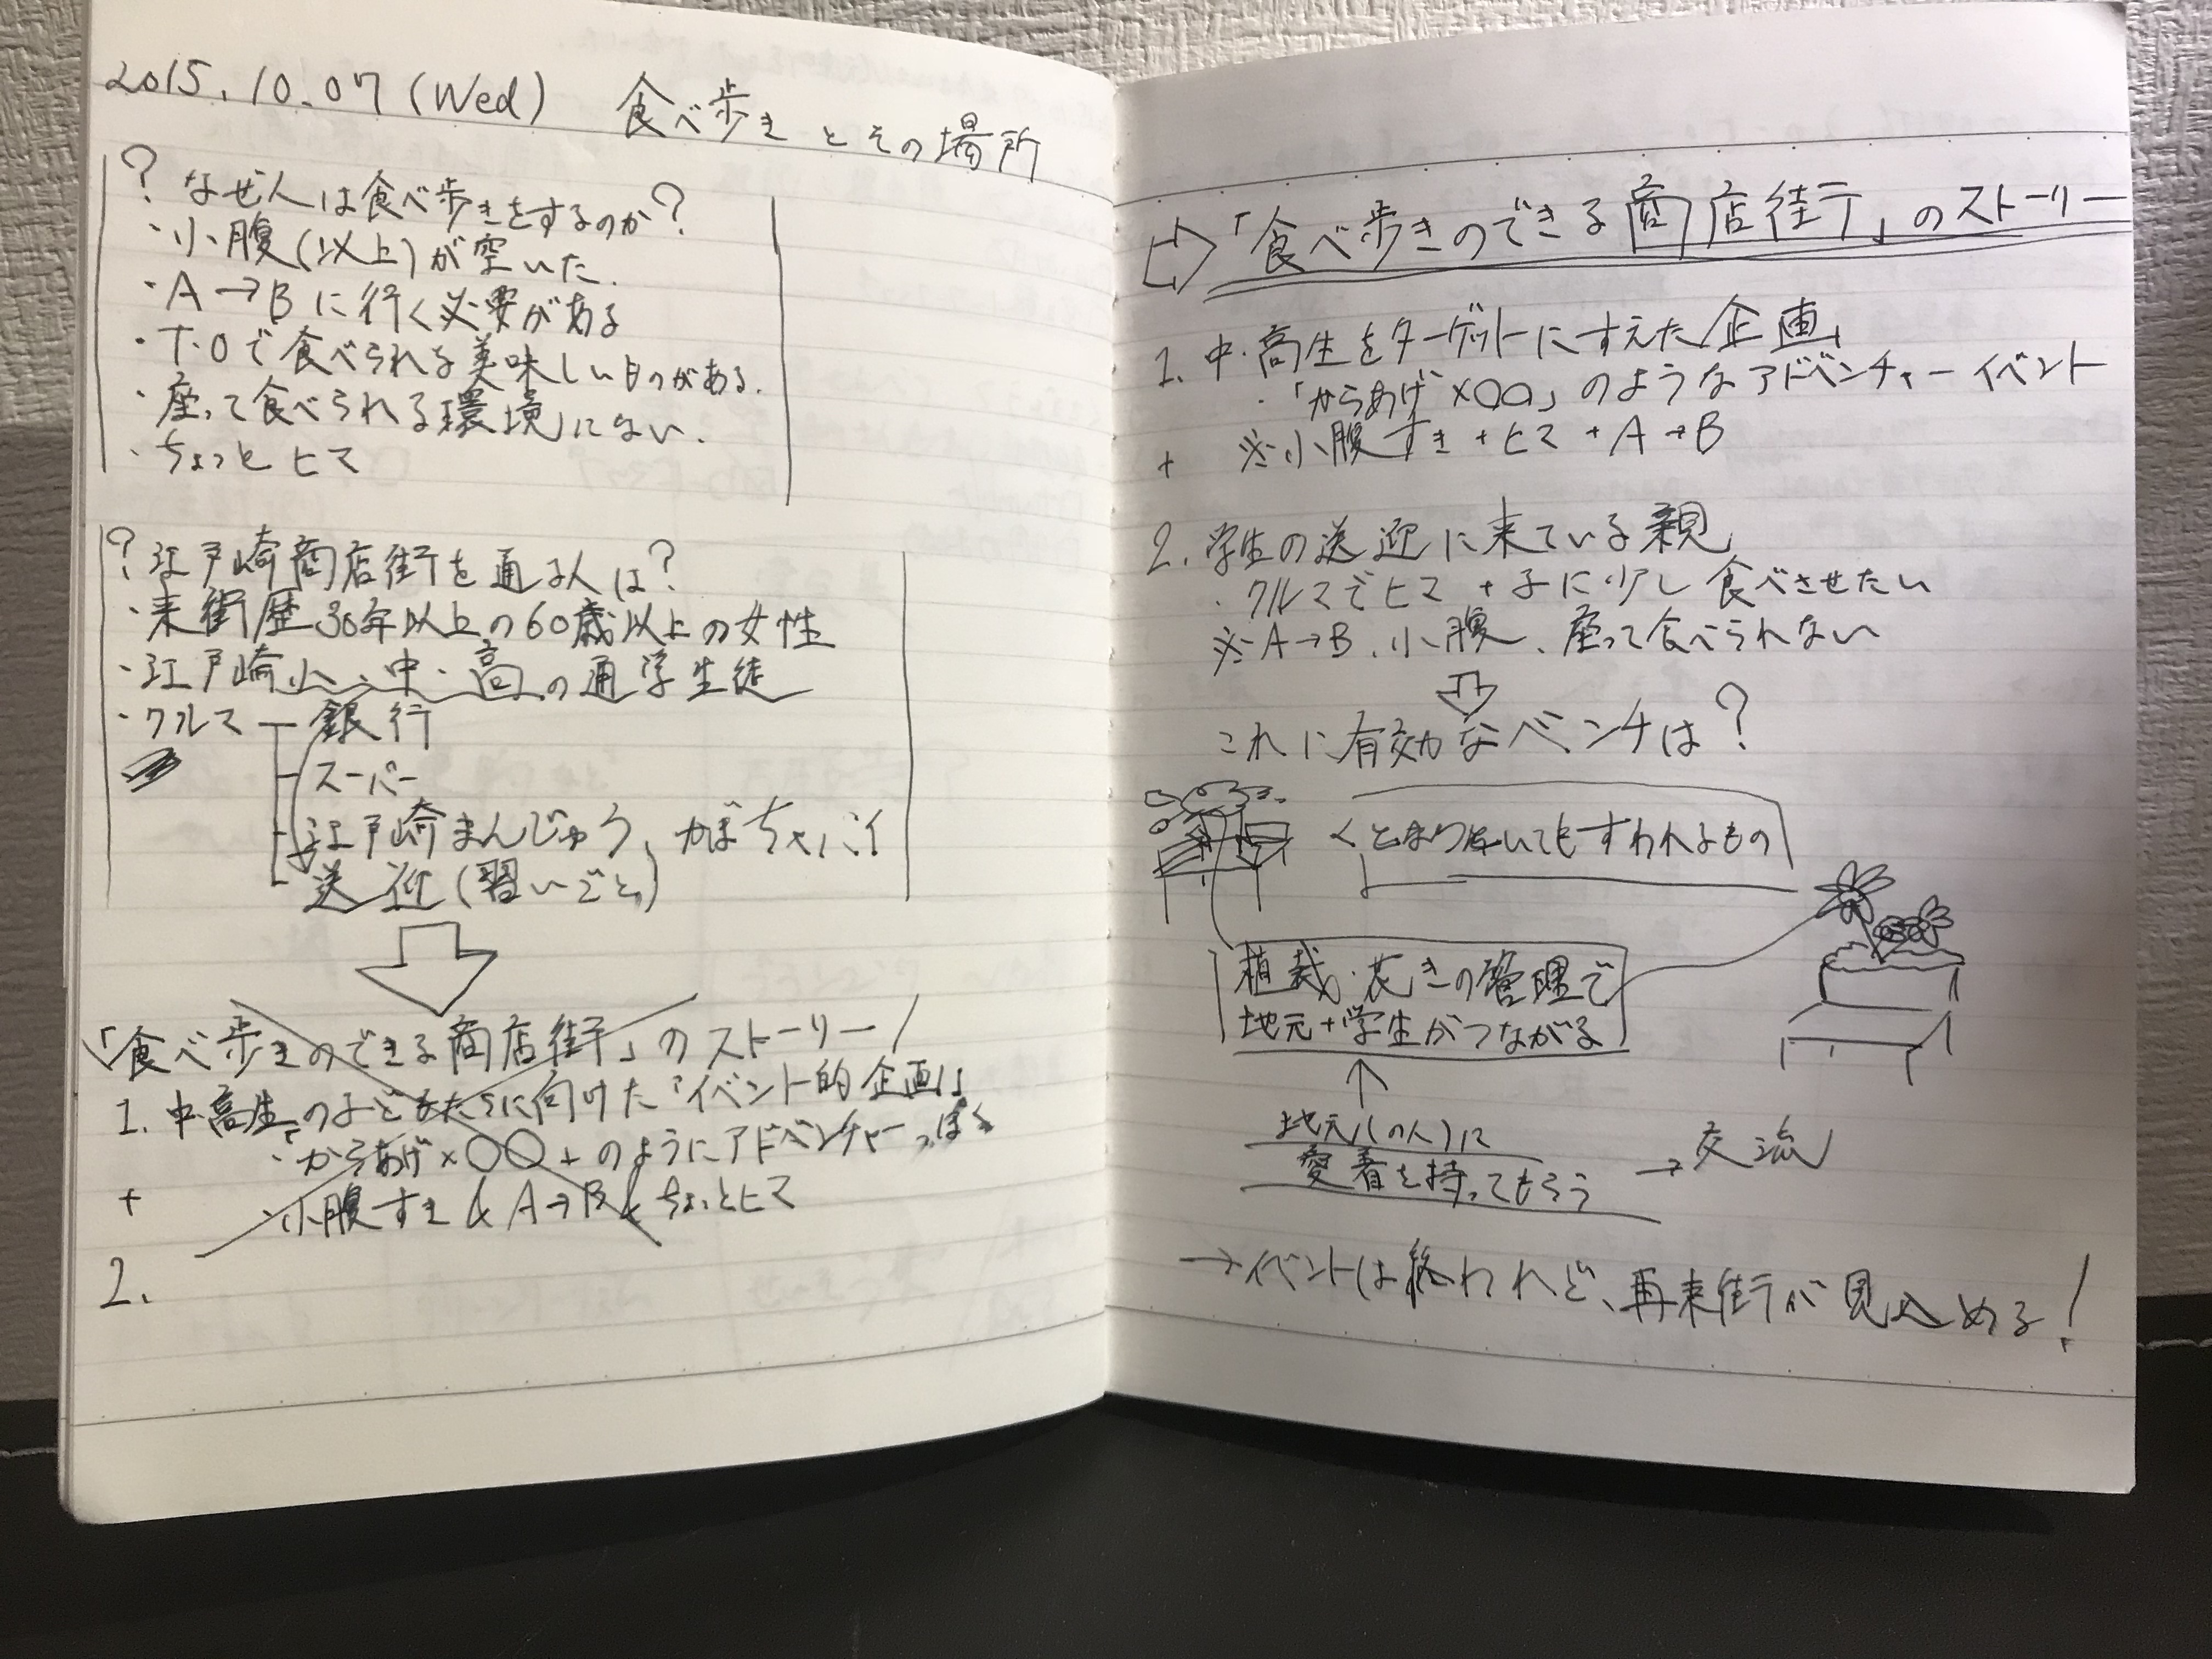 2015.10.07 (Wed) 食べ歩きとその場所
? なぜ人は食べ歩きをするのか?
・小腹(以上)が空いた.
・A→Bに行く必要がある
・T.Oで食べられる美味しいものがある.
・座って食べられる環境にない.
・ちょっとヒマ
? 江戸崎商店街を通る人は?
・来街歴30年以上の60歳以上の女性
・江戸崎小、中・高の通学生徒
・クルマ 銀行
スーパー
江戸崎まんじゅう、かぼちゃパイ
送迎(習いごと)
「食べ歩きのできる商店街」のストーリー
1. 中・高生の子どもたちに向けた「イベント的企画」
・「からあげ×○○」のようにアドベンチャーっぽく
+ ・小腹すき & A→B & ちょっとヒマ
2.
⇨「食べ歩きのできる商店街」のストーリー
1. 中・高生をターゲットにすえた企画
・「からあげ×○○」のようなアドベンチャーイベント
+ ※小腹すき+ヒマ+A→B
2. 学生の送迎に来ている親
・クルマでヒマ+子に少し食べさせたい
※A→B、小腹、座って食べられない
これに有効なベンチは?
すわれるもの
植栽・花きの管理で
地元+学生がつながる
↑
地元(の人)に
愛着を持ってもらう → 交流
→イベントは終われど、再来街が見込める!